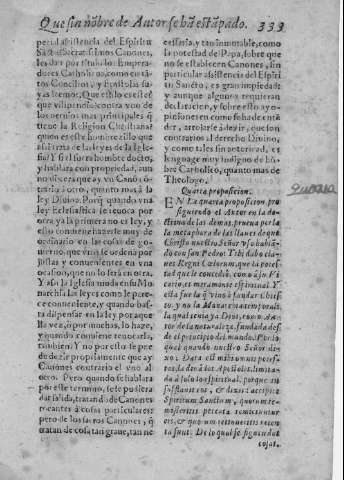 Que sin nõbre de Autor se hã estãpado. 333
peri al asistencia del Espiritu
Sãto decretar si los Canones,
les das por titulo los Empera-
dores Catholicos, como en tã-
tos Concilios, y Epistolas su-
yas leemos, Que estilo es el
que vilipendia contra vno de
los dermas mas principales q̃
tiene la Religion Christiana?
quien es este hombre zizo que
asi trata de las leyes de la Igle-
sia? Y si el fuera hombre docto,
y hablara con propriedad, aun
no dixera que ay vn Canõ cõ-
trario à otro, quanto mas à la
ley Diuina. Porq̃ quando vna
ley Eclesiastica se reuoca por
otra ya la primera no es ley, y
esto conuiene hazerse muy de
ordinario en las cosas de go-
uierno, que vnas se ordenan por
justas y conuenientes en vna
ocasion, que no lo serã en otra.
Y asi la Iglesia muda en su Mo-
narchia las leyes como le pare-
ce conueniente, y quando bas-
ta dispensar en la ley por aque-
lla vez, ò por muchas, lo haze,
y quando conuiene reuocarla,
tambien. Y no por esto se pue-
de dezir propiamente que ay
Canones contrario el vno al
otro. Pero quando se hablara
por este termino, se le pudiera
dar salida, tratando de Canones
tocantes à cosas particulares:
pero de los sacros Canones, q̃
tratan de cosa tan graue, tan ne
cessaria, y tan inmutable, como
la potestad de Papa, sobre que
no se establecen Canones, sin
particular asistencia del Espiri-
tu Sancto, es gran impiedad
y aunque algunos requieran
declaracion, y sobre esto ay o-
piniones en como se ha de enten
der, arrojarse à dezir, que son
contrarios al derecho Diuino,
y como tales sin autoridad, es
lenguage muy indigno de hõ-
bre Catholico, quanto mas de
Theologo.
Quarta proposicion.
EN La quarta proposicion, pro
siguiendo el Autor en la do-
ctrina de las demas, prueua por la
la metaphora de las llaues de que
Christo nuestro Señor vsò hablã-
do con san Pedro: Tibi dabo cla-
ues Regni Cœlorum, que la potes-
tad que le concediò, como à su Vi-
cario, es meramente espiritual. Y
ella fue la q̃ vino à fundar Chris-
to, y no la Monarchia temporal,
la qual tenia ya Dios, como Au-
tor de la naturaleza, fundada des-
de el principio del mundo. Por lo
qual quando nuestro Señor di-
xo: Data est mihi omnis potes-
tas, la de à los Apostoles, limitan-
do à solo lo espiritual, porque in-
sufflauit, & dixit: accipite
Spiritum Sanctum, quorum re-
miseritis peccata remittuntur
eis, & quorum retinueritis reten-
ta sunt. De lo qual se sigue dos
cosas.